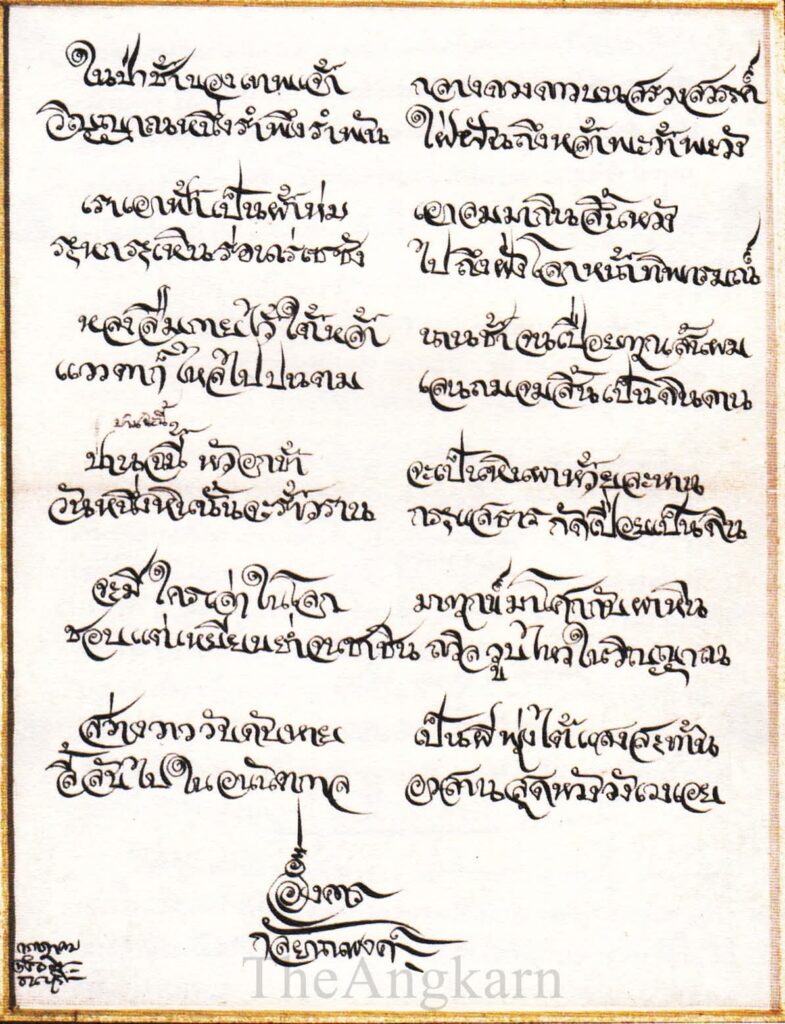 ในป่าช้าของเทพเจ้า กลางดวงดาวบนสรวงสวรรค์
วิญญาณหนึ่งรำพึงรำพัน ใฝ่ฝันถึงหล้าพะว้าพะวัง
เราเอาฟ้าเป็นผ้าห่ม เอาลมมากินสิ้นหวัง
ระหกระเหินร่อนเร่เซซัง ไปถึงฝั่งโลกหน้าทิพารมณ์
หลงลืมกายไว้ใต้หล้า นานช้าจนเปื่อยทุกเส้นผม
แววตาก็ไหลไปปนตม เลนถมจมสิ้นเป็นดินดาน
ป่านฉะนี้
ป่านฉะนี้ หัวอกช้ำ จะเป็นหินผาห้วยละหาน
วันหนึ่งหินนั้นจะร้าวราน กระแสธารกัดเปื่อยเป็นดิน
จะมีใครเล่าในโลก มาทุกข์มาโศกกับผาหิน
ชอบแต่เหยียบย่ำจนชาชิน ถวิลวูบไหวในวิญญาณ
สว่างวาววับดับหาย เป็นผีพุ่งไต้แสงสะท้าน
ลี้ลับไปในอนันตกาล อวสานสุดหวังวังเวงเอย
อังคาร
กัลยาณพงศ์
TheAngkarn